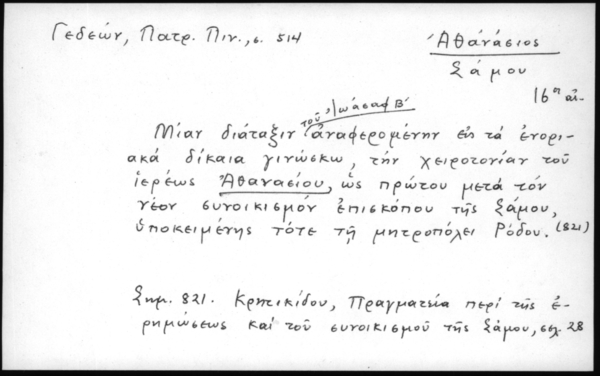 Γεδεών, Πατρ. Πιν., σ. 514
Ἀθανάσιος
Σάμου
16ος αἰ.
τοῦ Ἰωάσαφ Β΄
Μίαν διάταξιν ἀναφερομένην εἰς τά ἐνορι-
ακά δίκαια γινώσκω, τήν χειροτονίαν τοῦ
ἱερέως Ἀθανασίου, ὡς πρώτου μετά τόν
νέον συνοικισμόν ἐπισκόπου τῆς Σάμου,
ὑποκειμένης τότε τῇ μητροπόλει Ρόδου. (821)
Σημ. 821. Κρητικίδου, Πραγματεία περί τῆς ἐ-
ρημώσεως καί τοῦ συνοικισμοῦ τῆς Σάμου, σελ. 28